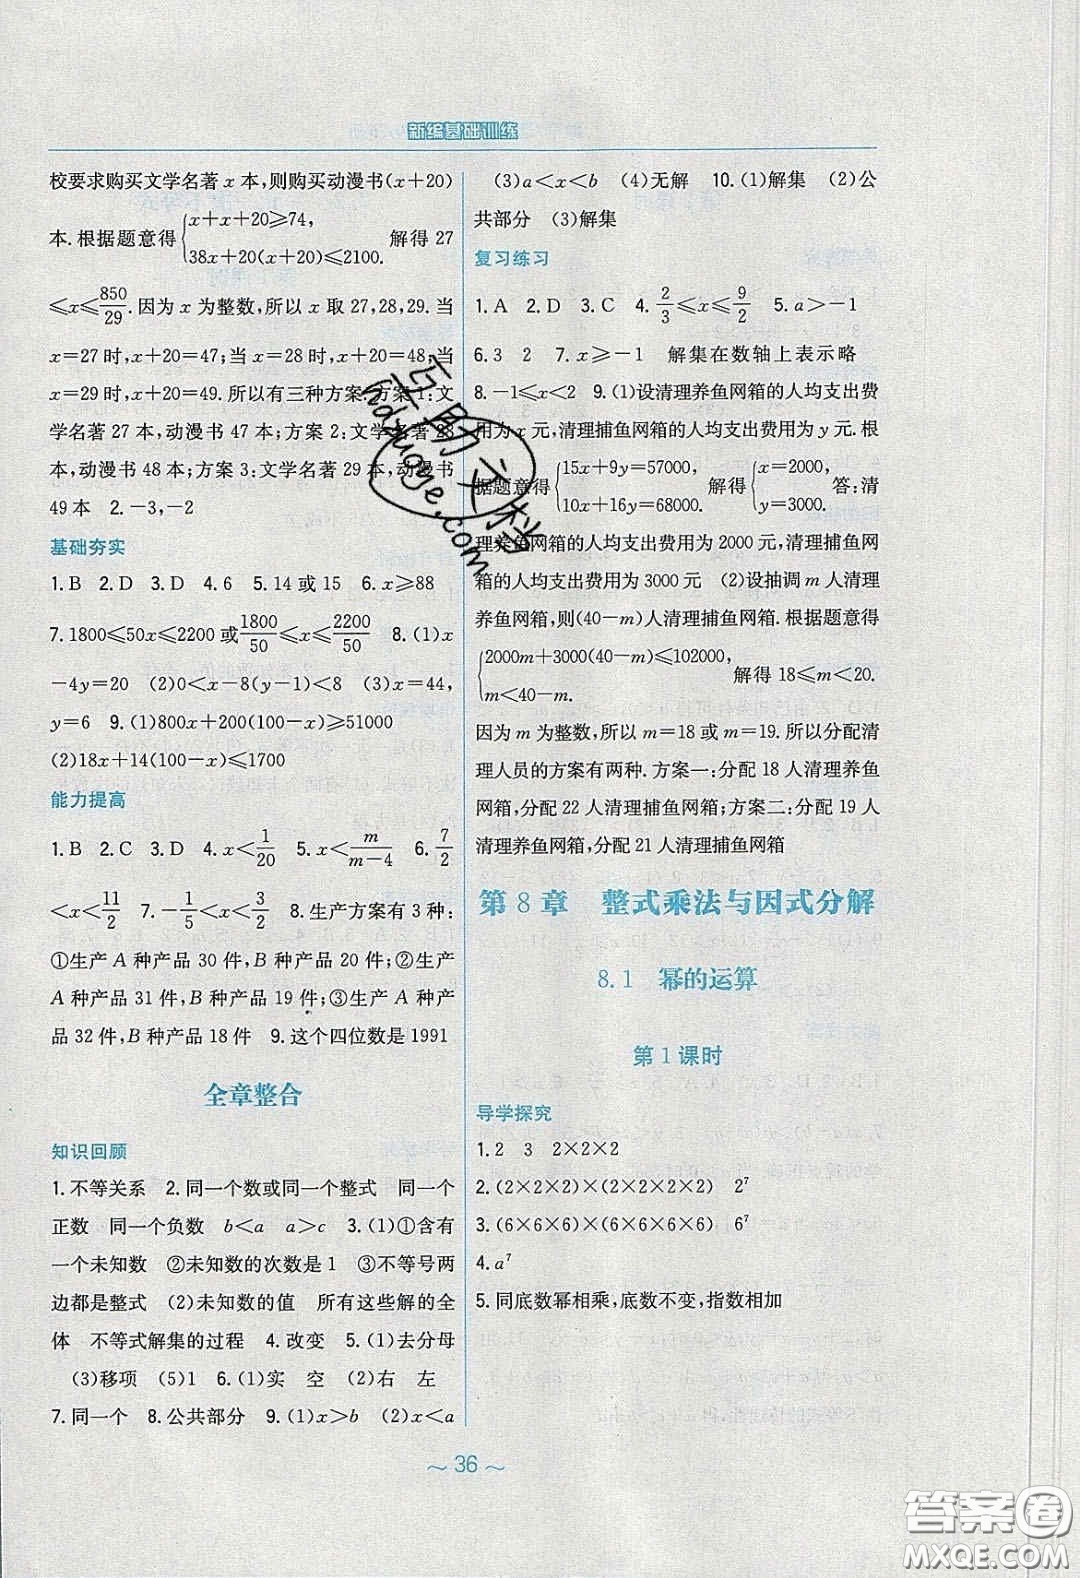 新编基础训练
校要求购买文学名著 x 本,则购买动漫书(x+20)
本.根据题意得{x+x+20≥74, 38x+20(x+20)≤2100. 解得 27
≤x≤850/29.因为 x 为整数,所以 x 取 27,28,29.当
x=27 时,x+20=47;当 x=28 时,x+20=48,当
x=29 时,x+20=49.所以有三种方案.方案 1:文
学名著 27 本,动漫书 47 本;方案 2:文学名著 28
本,动漫书 48 本;方案 3:文学名著 29 本,动漫书
49 本 2.-3,-2
基础夯实
1.B 2.D 3.D 4.6 5.14 或 15 6.x≥88
7.1800≤50x≤2200 或 1800/50≤x≤2200/50 8.(1)x
-4y=20 (2)0<x-8(y-1)<8 (3)x=44,
y=6 9.(1)800x+200(100-x)≥51000
(2)18x+14(100-x)≤1700
能力提高
1.B 2.C 3.D 4.x<1/20 5.x<m/(m-4) 6.7/2
<x<11/2 7.-1/5<x<3/2 8.生产方案有 3 种:
①生产 A 种产品 30 件,B 种产品 20 件;②生产
A 种产品 31 件,B 种产品 19 件;③生产 A 种产品
32 件,B 种产品 18 件 9.这个四位数是 1991
全章整合
知识回顾
1.不等关系 2.同一个数或同一个整式 同一个
正数 同一个负数 b<a a>c 3.(1)①含有
一个未知数 ②未知数的次数是 1 ③不等号两
边都是整式 (2)未知数的值 所有这些解的全
体 不等式解集的过程 4.改变 5.(1)去分母
(3)移项 (5)1 6.(1)实 空 (2)右 左
7.同一个 8.公共部分 9.(1)x>b (2)x<a
(3)a<x<b (4)无解 10.(1)解集 (2)公
共部分 (3)解集
复习练习
1.A 2.D 3.C 4.2/3≤x≤9/2 5.a>-1
6.3 2 7.x≥-1 解集在数轴上表示略
8.-1≤x<2 9.(1)设清理养鱼网箱的人均支出费
用为 x 元,清理捕鱼网箱的人均支出费用为 y 元.根
据题意得{15x+9y=57000, 10x+16y=68000. 解得{x=2000, y=3000. 答:清
理养鱼网箱的人均支出费用为 2000 元,清理捕鱼网
箱的人均支出费用为 3000 元 (2)设抽调 m 人清理
养鱼网箱,则(40-m)人清理捕鱼网箱.根据题意得
{2000m+3000(40-m)≤102000, m<40-m. 解得 18≤m<20.
因为 m 为整数,所以 m=18 或 m=19.所以分配清
理人员的方案有两种.方案一:分配 18 人清理养鱼
网箱,分配 22 人清理捕鱼网箱;方案二:分配 19 人
清理养鱼网箱,分配 21 人清理捕鱼网箱
第 8 章 整式乘法与因式分解
8.1 幂的运算
第 1 课时
导学探究
1.2 3 2×2×2
2.(2×2×2)×(2×2×2×2) 2⁷
3.(6×6×6)×(6×6×6×6) 6⁷
4.a⁷
5.同底数幂相乘,底数不变,指数相加
～36～
答案圈
MXQE.COM